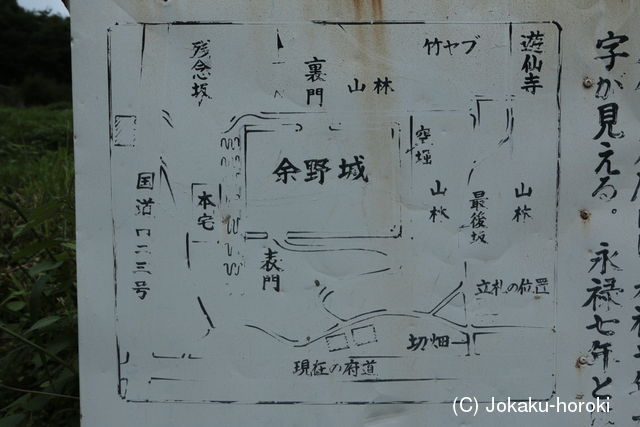 残念坂
裏門
山林
竹ヤブ
遊仙寺
空堀
余野城
国道四二三号
本宅
山林
最後坂
山林
表門
立札の位置
切畑
現在の府道
字か見える。永禄七年と
(C) Jokaku-horoki